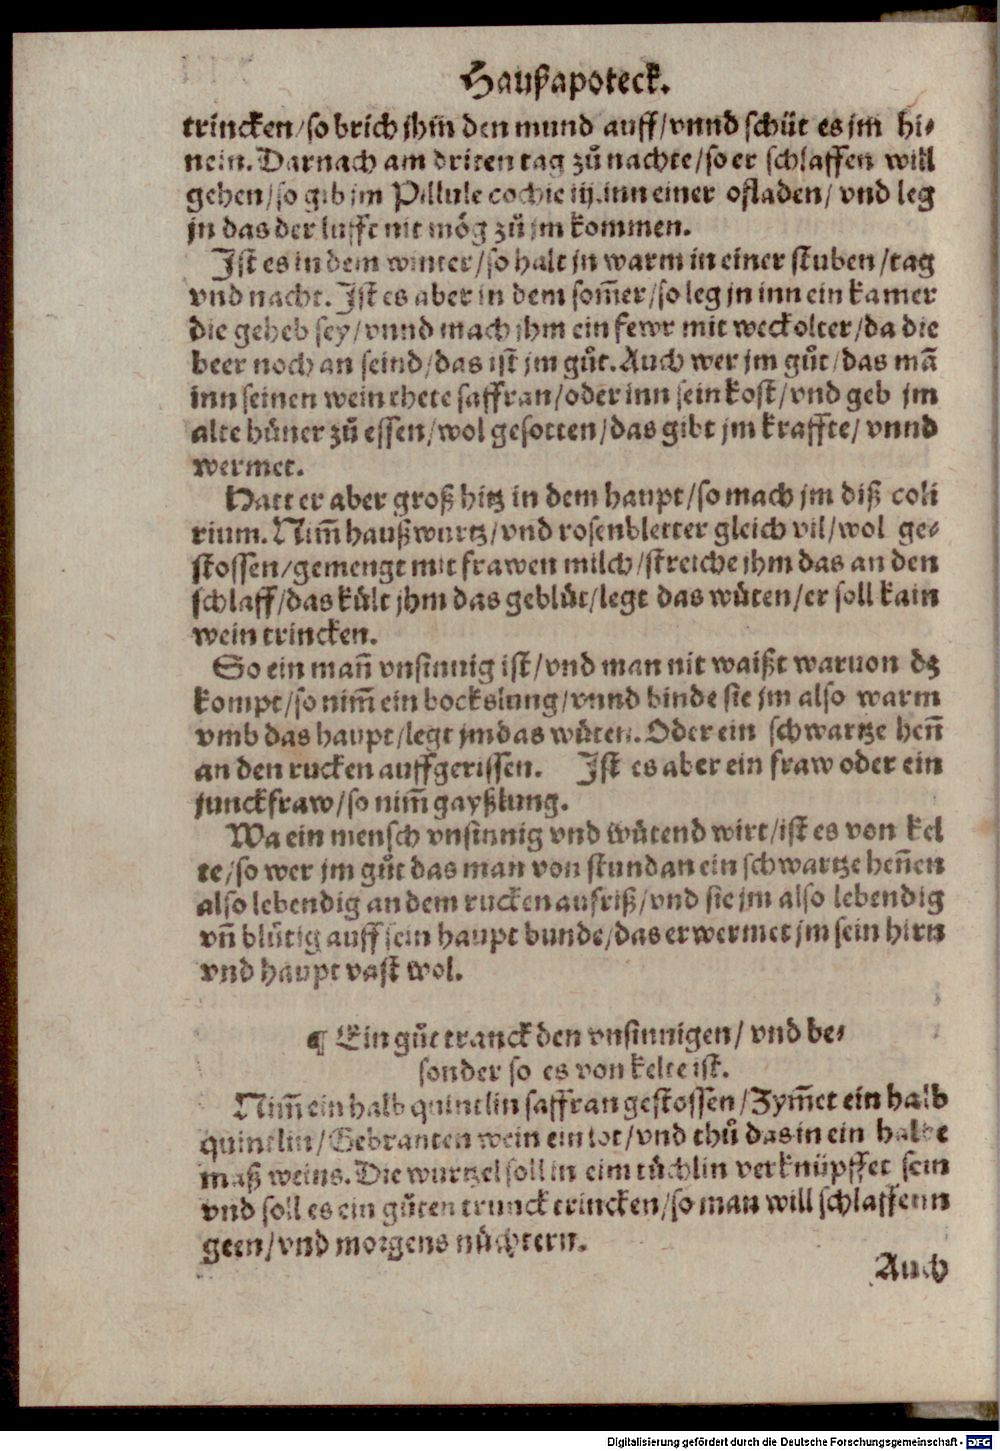 Haußapoteck.
trincken/so brich jhm den mund auff/vnnd schüt es jm hi⸗
nein. Darnach am driten tag zů nachte/so er schlaffen will
gehen/so gib jm Pillule cochie iij.inn einer ofladen/ vnd leg
jn das der lufft nit mög zů jm kommen.
Ist es in dem winter/so halt jn warm in einer stuben/tag
vnd nacht. Ist es aber in dem som̃er/so leg jn inn ein kamer
die geheb sey/vnnd mach jhm ein fewr mit weckolter/da die
beer noch an seind/das ist jm gůt. Auch wer jm gůt/das mã
inn seinen wein thete saffran/oder inn sein kost/vnd geb jm
alte hüner zů essen/wol gesotten/das gibt jm kraffte/ vnnd
wermet.
Hatt er aber groß hitz in dem haupt/so mach jm diß coli
rium. Nim̃ haußwurtz/vnd rosenbletter gleich vil/wol ge⸗
stossen/gemengt mit frawen milch/streiche jhm das an den
schlaff/das kült jhm das geblüt/legt das wüten/er soll kain
wein trincken.
So ein mañ vnsinnig ist/vnd man nit waißt waruon dz
kompt/so nim̃ ein bockslung/vnnd binde sie jm also warm
vmb das haupt/legt jm das wüten. Oder ein schwartze heñ
an den rucken auffgerissen. Ist es aber ein fraw oder ein
junckfraw/so nim̃ gayßlung.
Wa ein mensch vnsinnig vnd wütend wirt/ist es von kel
te/so wer jm gůt das man von stundan ein schwartze heñen
also lebendig an dem rucken aufriß/vnd sie jm also lebendig
vñ blůtig auff sein haupt bunde/das erwermet jm sein hirn
vnd haupt vast wol.
¶ Ein gůt tranck den vnsinnigen/ vnd be⸗
sonder so es von kelte ist.
Nim̃ ein halb quintlin saffran gestossen/Zym̃et ein halb
quintlin/Gebranten wein ein lot/vnd thů das in ein halbe
maß weins. Die wurtzel soll in eim tüchlin verknüpffet sein
vnd soll es ein gůten trunck trincken/so man will schlaffenn
geen/vnd morgens nüchtern.
Auch
Digitalisierung gefördert durch die Deutsche Forschungsgemeinschaft - DFG